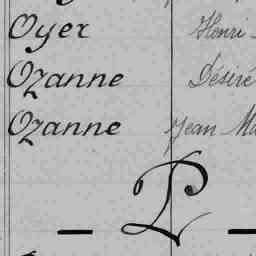 Oyer Henri
Ozanne Désiré
Ozanne Jean Ma
P